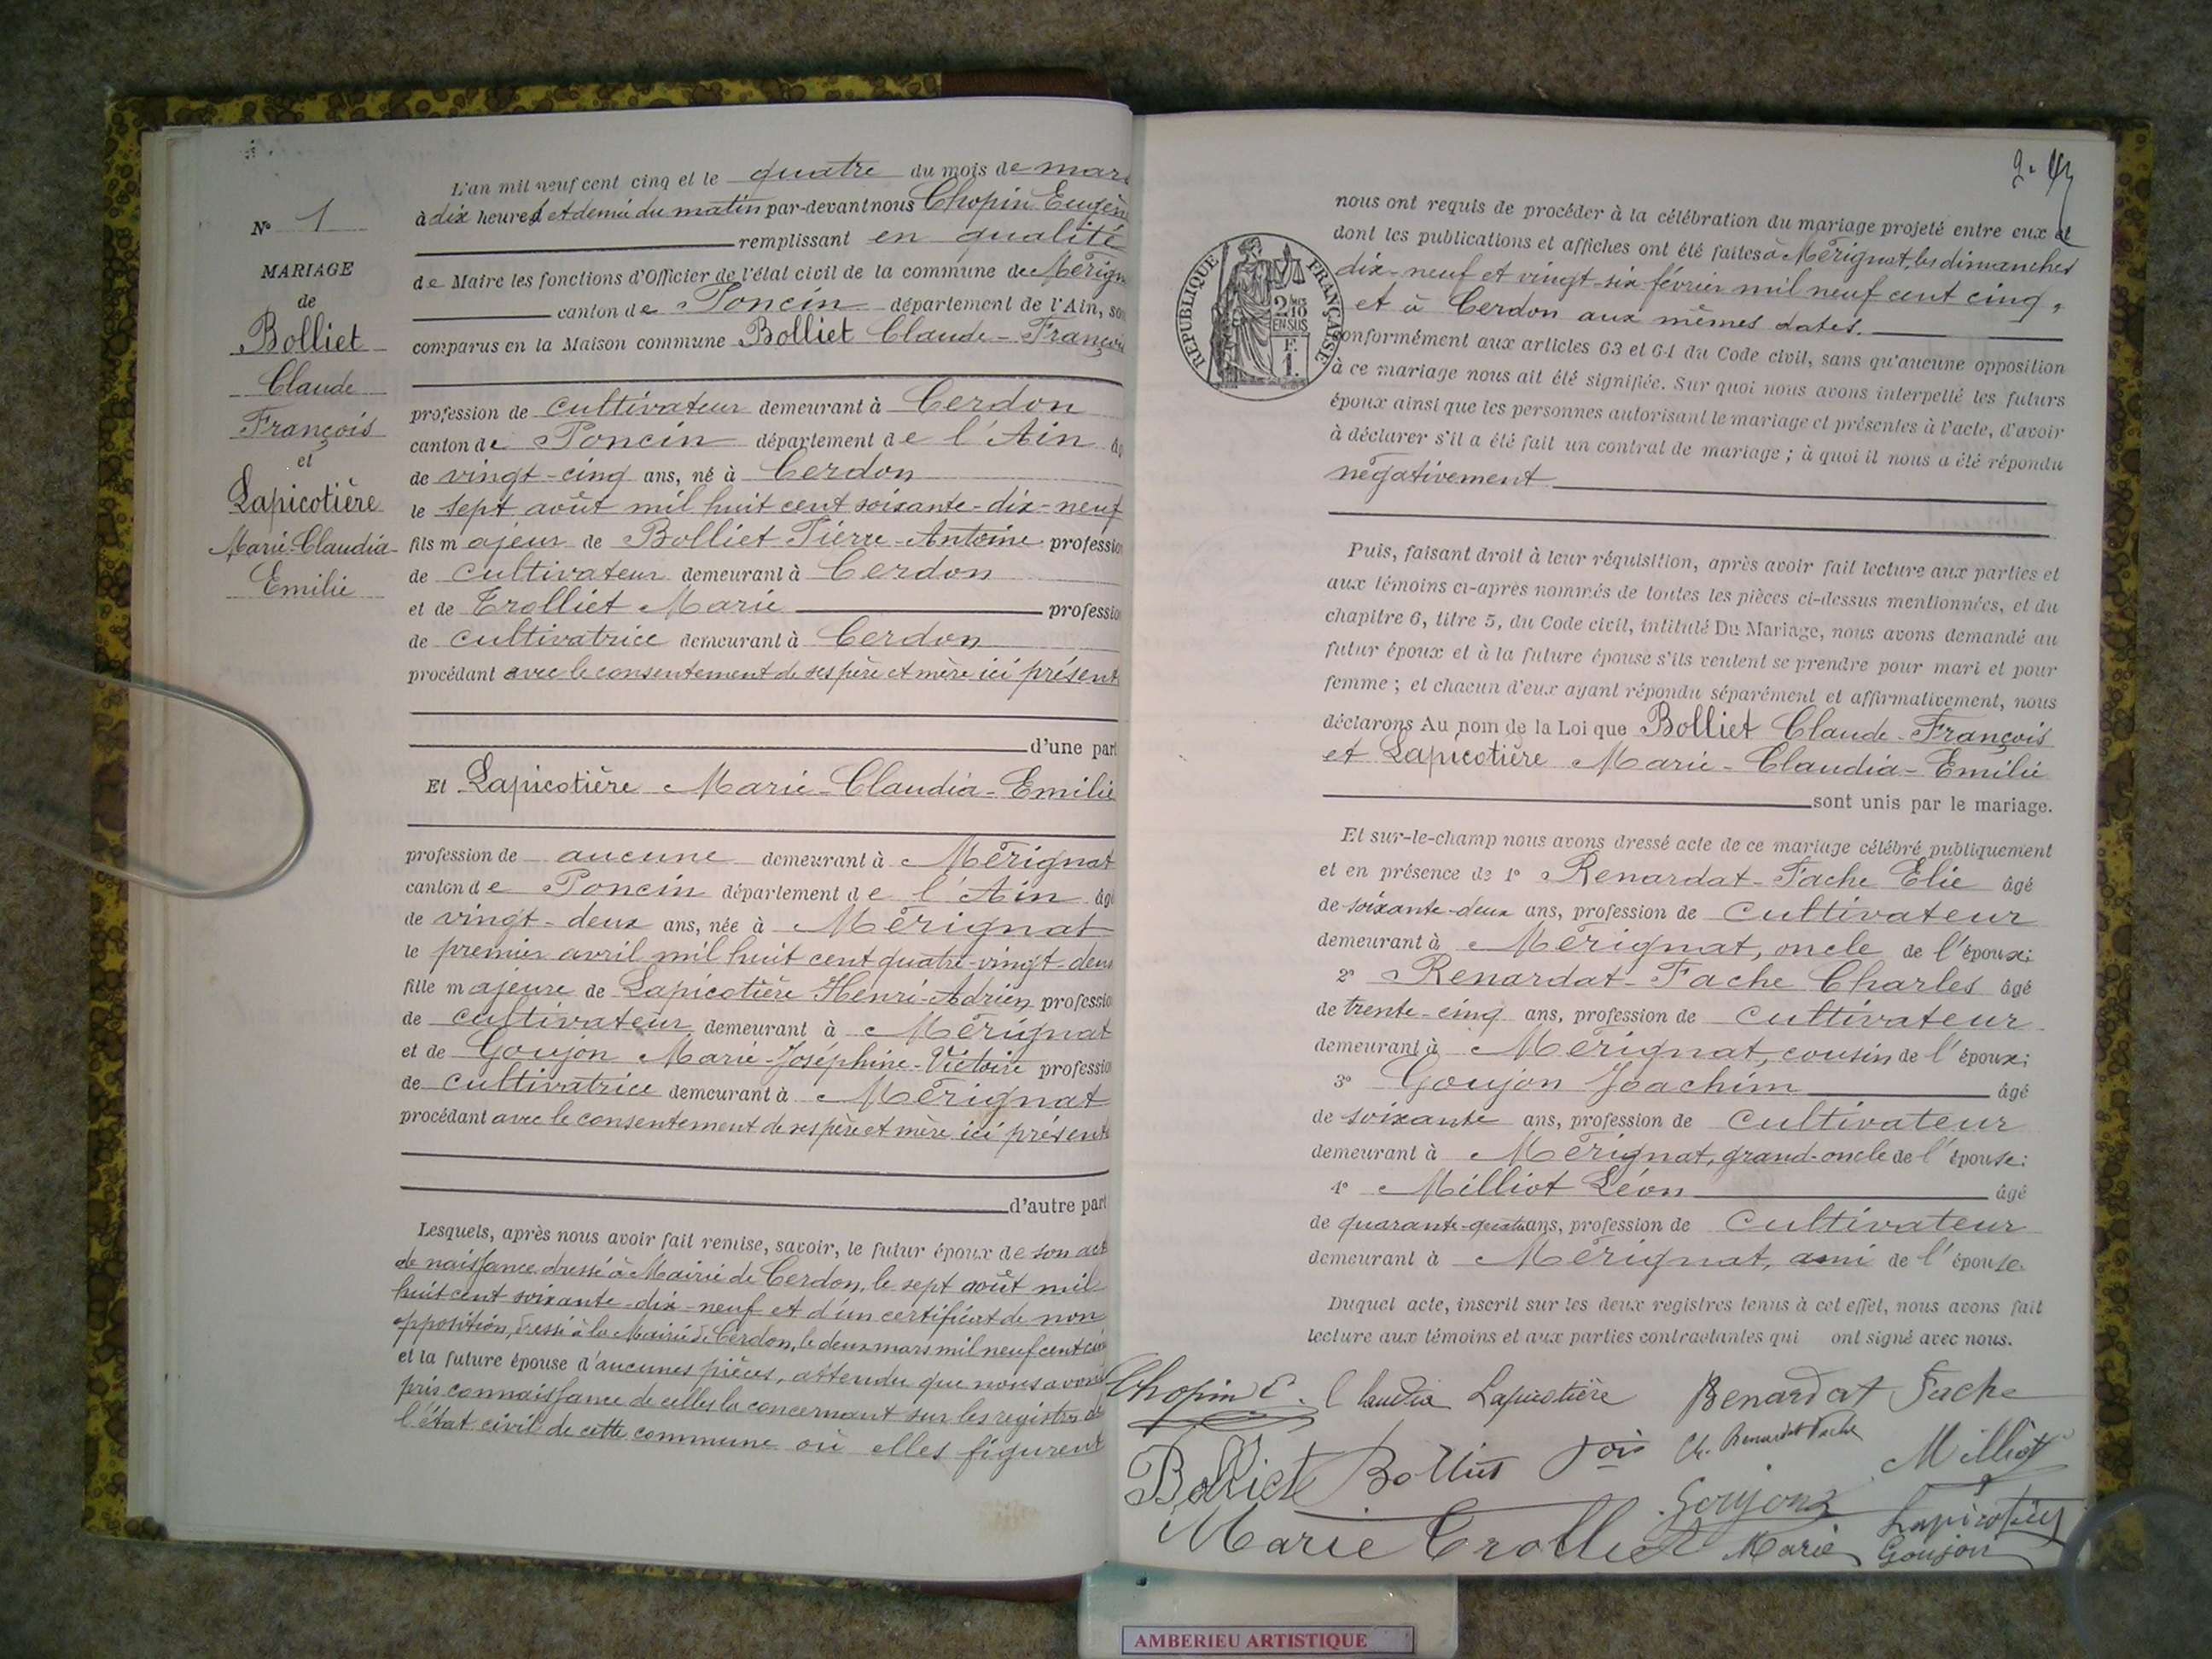 N° 1
MARIAGE
de
Bolliet
Claude
François
et
Lapicotière
Marie-Claudia
Emilie
L'an mil neuf cent cinq et le quatre du mois de mars
à dix heures et demie du matin par-devant nous Chopin Eugène
remplissant en qualité
de Maire les fonctions d'Officier de l'état civil de la commune de Mérign
canton de Poncin département de l'Ain, so
comparus en la Maison commune Bolliet Claude-François
profession de cultivateur demeurant à Cerdon
canton de Poncin département de l'Ain âg
de vingt-cinq ans, né à Cerdon
le sept août mil huit cent soixante-dix-neuf
fils majeur de Bolliet Pierre-Antoine professio
de cultivateur demeurant à Cerdon
et de Trolliet Marie professio
de cultivatrice demeurant à Cerdon
procédant avec le consentement de ses père et mère ici présents
d'une part
Et Lapicotière Marie-Claudia-Emilie
profession de aucune demeurant à Mérignat
canton de Poncin département de l'Ain âgé
de vingt-deux ans, née à Mérignat
le premier avril mil huit cent quatre-vingt-deux
fille majeure de Lapicotière Henri-Adrien professio
de cultivateur demeurant à Mérignat
et de Goujon Marie-Joséphine-Victoire professio
de cultivatrice demeurant à Mérignat
procédant avec le consentement de ses père et mère ici présents
d'autre part
Lesquels, après nous avoir fait remise, savoir, le futur époux de son acte
de naissance dressé à Mairie de Cerdon, le sept août mil
huit cent soixante-dix-neuf et d'un certificat de non
opposition, dressé à la Mairie de Cerdon, le deux mars mil neuf cent cinq
et la future épouse d'aucunes pièces, attendu que nous avons
pris connaissance de celles la concernant sur les registres de
l'état civil de cette commune où elles figurent
2.
RÉPUBLIQUE FRANÇAISE
2/10
EN SUS
F.
1.
nous ont requis de procéder à la célébration du mariage projeté entre eux et
dont les publications et affiches ont été faites à Mérignat, les dimanches
dix-neuf et vingt-six février mil neuf cent cinq,
et à Cerdon aux mêmes dates.
conformément aux articles 63 et 64 du Code civil, sans qu'aucune opposition
à ce mariage nous ait été signifiée. Sur quoi nous avons interpellé les futurs
époux ainsi que les personnes autorisant le mariage et présentes à l'acte, d'avoir
à déclarer s'il a été fait un contrat de mariage ; à quoi il nous a été répondu
négativement
Puis, faisant droit à leur réquisition, après avoir fait lecture aux parties et
aux témoins ci-après nommés de toutes les pièces ci-dessus mentionnées, et du
chapitre 6, titre 5, du Code civil, intitulé Du Mariage, nous avons demandé au
futur époux et à la future épouse s'ils veulent se prendre pour mari et pour
femme ; et chacun d'eux ayant répondu séparément et affirmativement, nous
déclarons Au nom de la Loi que Bolliet Claude-François
et Lapicotière Marie-Claudia-Emilie
sont unis par le mariage.
Et sur-le-champ nous avons dressé acte de ce mariage célébré publiquement
et en présence de 1° Renardat-Fache Elie âgé
de soixante-deux ans, profession de cultivateur
demeurant à Mérignat, oncle de l'époux;
2° Renardat-Fache Charles âgé
de trente-cinq ans, profession de cultivateur
demeurant à Mérignat, cousin de l'époux;
3° Goujon Joachim âgé
de soixante ans, profession de cultivateur
demeurant à Mérignat, grand-oncle de l'épouse;
4° Milliot Léon âgé
de quarante-quatre ans, profession de cultivateur
demeurant à Mérignat, ami de l'épouse.
Duquel acte, inscrit sur les deux registres tenus à cet effet, nous avons fait
lecture aux témoins et aux parties contractantes qui ont signé avec nous.
Chopin E. Claudia Lapicotière Renardat Fache
Bolliet Bolliet fois Ch. Renardat Fache Milliot
Goujon Lapicotière
Marie Trolliet Marie Goujon
AMBERIEU ARTISTIQUE